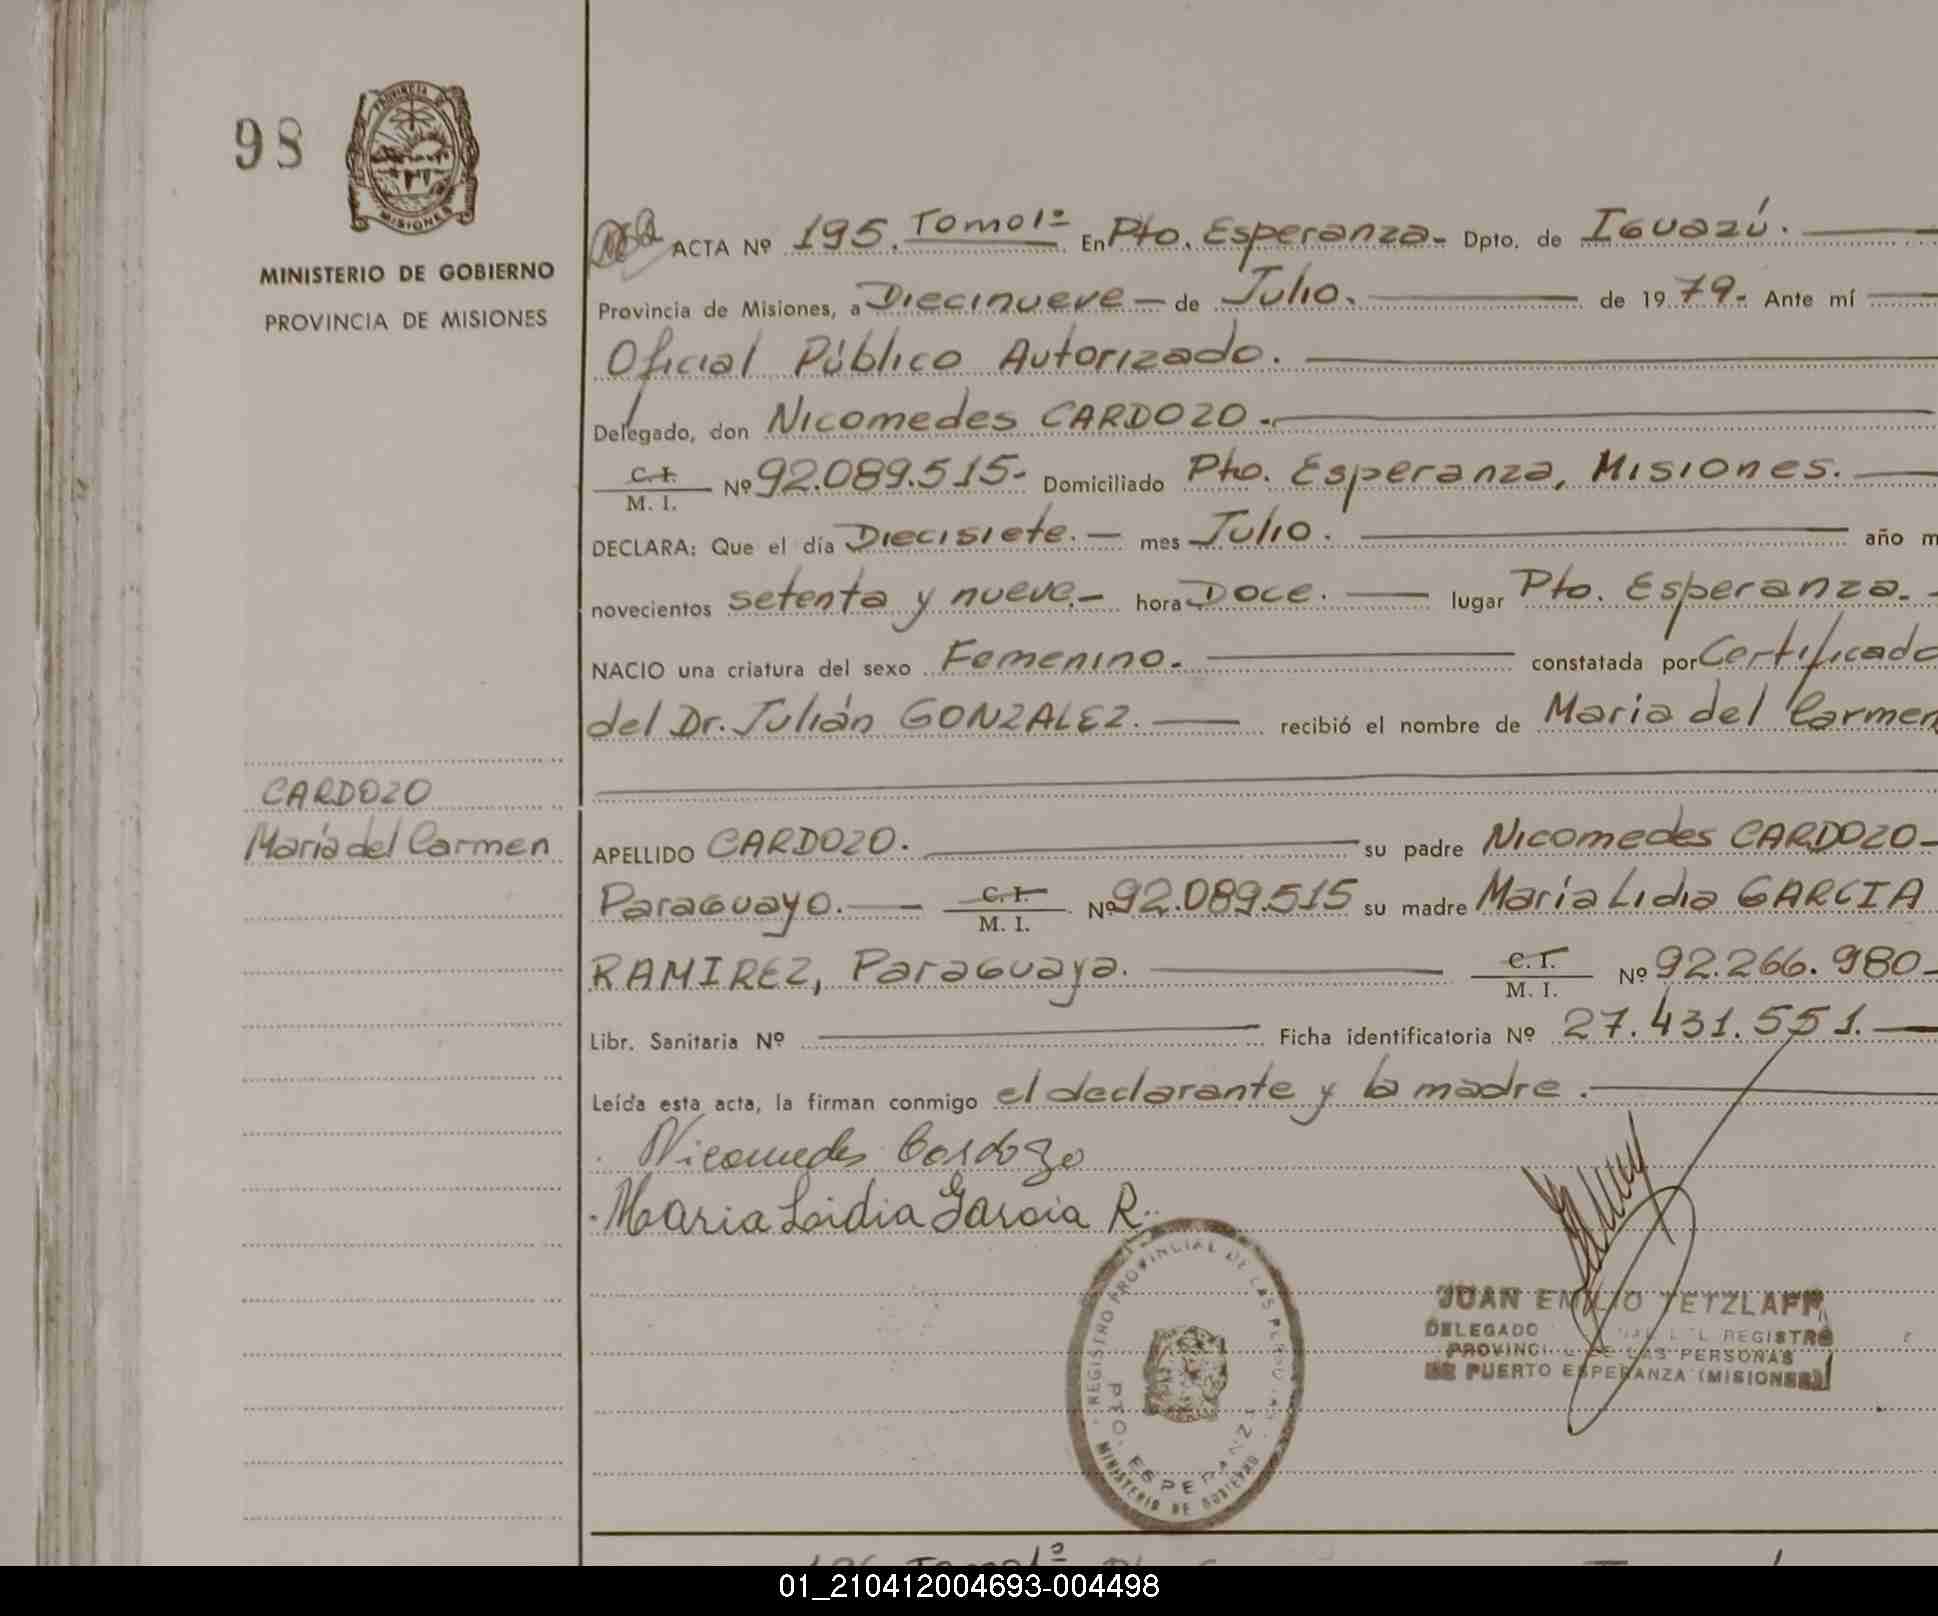 98
PROVINCIA DE
MISIONES
MINISTERIO DE GOBIERNO
PROVINCIA DE MISIONES
ACTA Nº 195. Tomo 1º En Pto. Esperanza- Dpto. de Iguazú.
Provincia de Misiones, a Diecinueve de Julio. de 1979.- Ante mí
Oficial Público Autorizado.
Delegado, don Nicomedes CARDOZO.-
C. I.
M. I. Nº 92.089.515- Domiciliado Pto. Esperanza, Misiones.
DECLARA: Que el día Diecisiete.- mes Julio. año m
novecientos setenta y nueve.- hora Doce. lugar Pto. Esperanza.-
NACIO una criatura del sexo Femenino.- constatada por Certificado
del Dr. Julián GONZALEZ. recibió el nombre de Maria del Carmen
CARDOZO
María del Carmen
APELLIDO CARDOZO. su padre Nicomedes CARDOZO-
Paraguayo.- C. I.
M. I. Nº 92.089.515 su madre María Lidia GARCIA
RAMIREZ, Paraguaya. C. I.
M. I. Nº 92.266.980-
Libr. Sanitaria Nº Ficha identificatoria Nº 27.431.551.
Leída esta acta, la firman conmigo el declarante y la madre.
Nicomedes Cardozo
Maria Lidia Garcia R.
REGISTRO PROVINCIAL DE LAS PERSONAS
PTO. ESPERANZA
MINISTERIO DE GOBIERNO
JUAN EMILIO TETZLAFF
DELEGADO REGISTRO
PROVINCIAL DE LAS PERSONAS
DE PUERTO ESPERANZA (MISIONES)
01_210412004693-004498